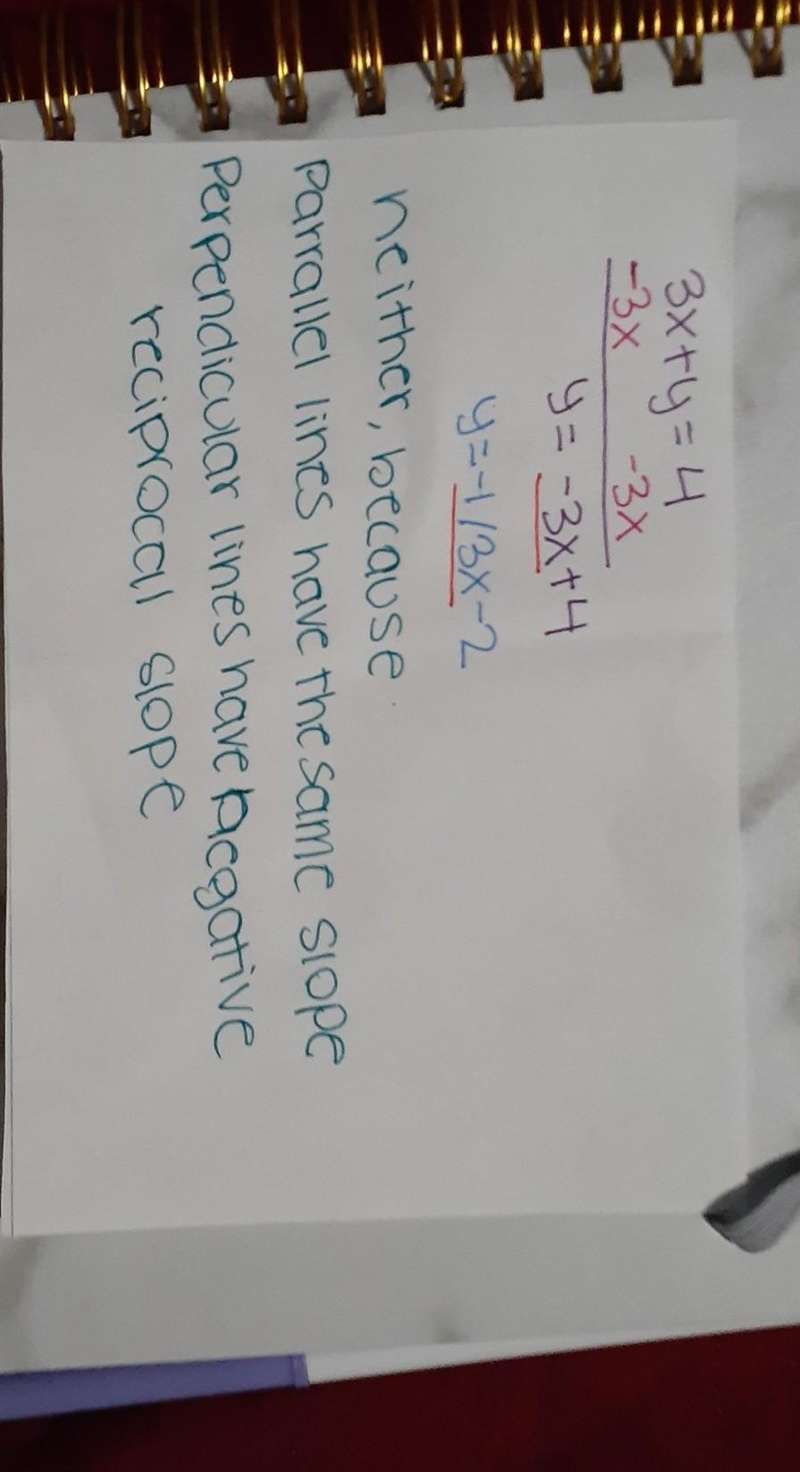 3x+y=4
-3x -3x
y=-3x+4
y=-1/3x-2
neither, because
Parrallel lines have the same slope
Perpendicular lines have negative
reciprocal slope